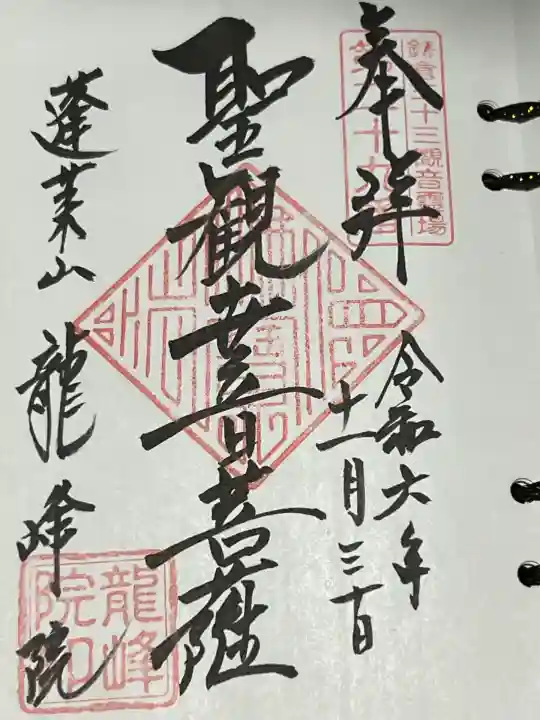 奉拝
鎌倉三十三観音霊場
第二十九番
令和六年
十一月三十日
聖観世音菩薩
蓬莱山 龍峰院
龍峰
院印